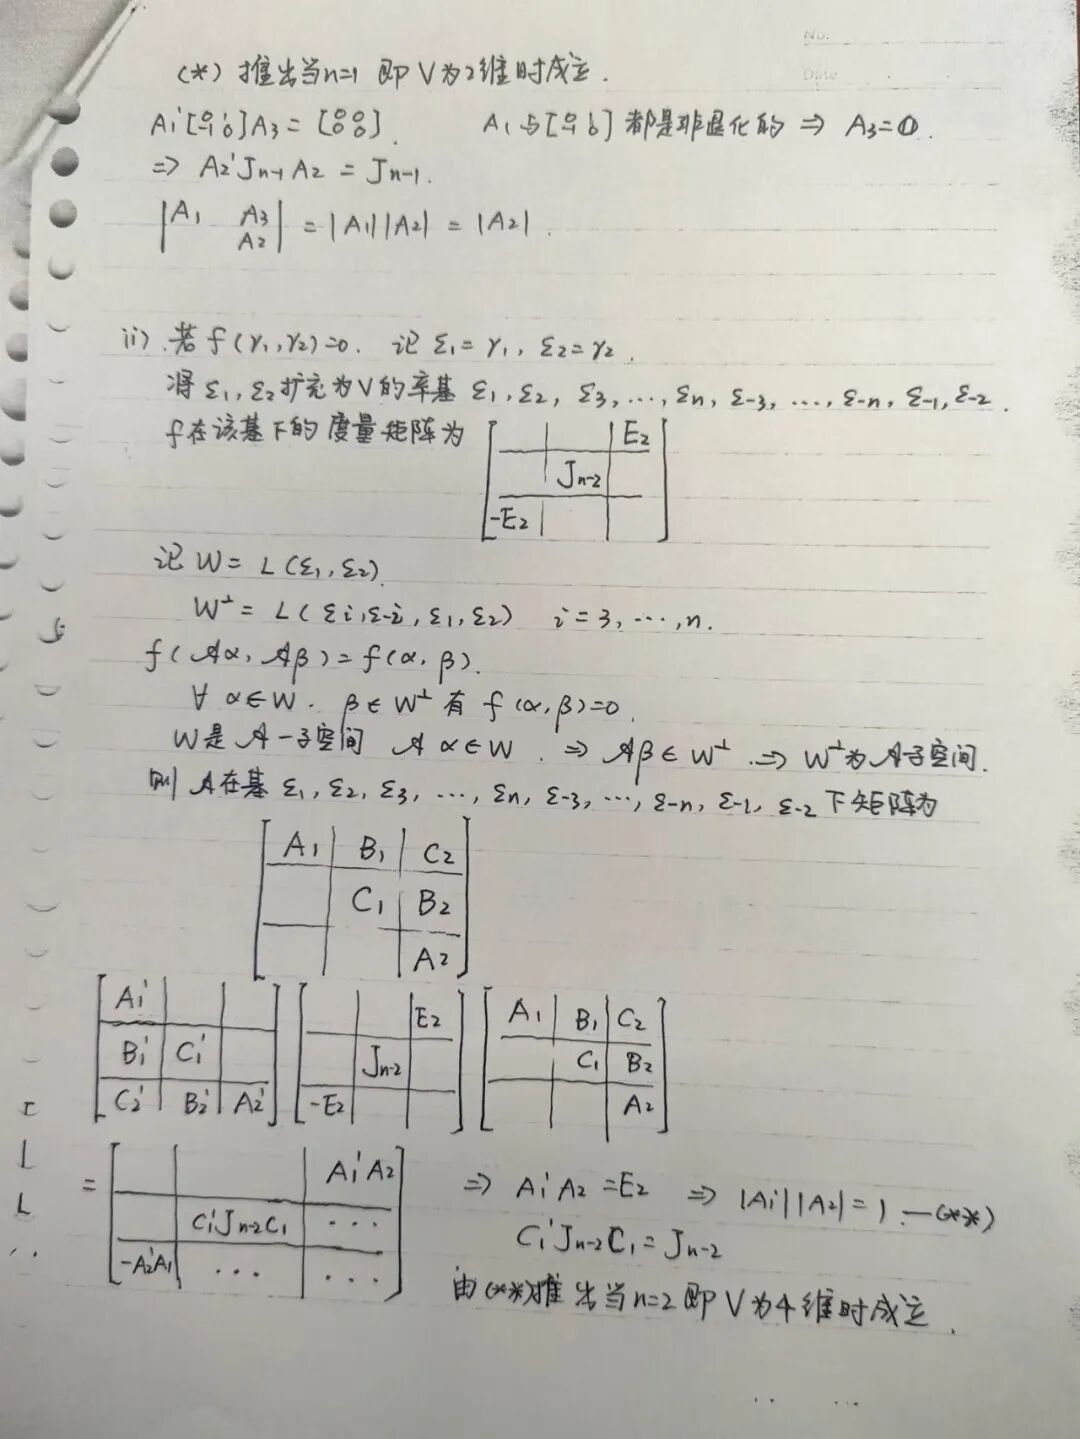 No.
Date
(*) 推出当n=1 即V为2维时成立.
A₁'[0 1 -1 0]A₃ = [0 0 0 0]. A₁与[0 1 -1 0]都是非退化的 ⇒ A₃=0.
⇒ A₂'Jn-1A₂ = Jn-1.
|A₁ A₃
A₂| = |A₁||A₂| = |A₂|.
ii). 若 f(γ₁,γ₂)=0. 记 ε₁=γ₁, ε₂=γ₂.
将 ε₁,ε₂扩充为V的辛基 ε₁,ε₂, ε₃,…,εn, ε-3,…,ε-n, ε-1,ε-2.
f在该基下的度量矩阵为 [E₂
Jn-2
-E₂]
记 W= L(ε₁,ε₂).
W⊥ = L(εi,ε-i,ε₁,ε₂) i=3,…,n.
f(𝒜α, 𝒜β)=f(α,β).
∀ α∈W. β∈W⊥ 有 f(α,β)=0.
W是𝒜-子空间 𝒜α∈W. ⇒ 𝒜β∈W⊥ .⇒ W⊥为𝒜子空间.
则 𝒜在基 ε₁,ε₂,ε₃,…,εn,ε-3,…,ε-n,ε-1,ε-2 下矩阵为
[A₁ B₁ C₂
C₁ B₂
A₂]
[A₁'
B₁' C₁'
C₂' B₂' A₂'] [E₂
Jn-2
-E₂] [A₁ B₁ C₂
C₁ B₂
A₂]
= [A₁'A₂
C₁'Jn-2C₁ …
-A₂'A₁ … …] ⇒ A₁'A₂=E₂ ⇒ |A₁'||A₂|=1.—(**)
C₁'Jn-2C₁=Jn-2
由(**)推出当n=2即V为4维时成立.